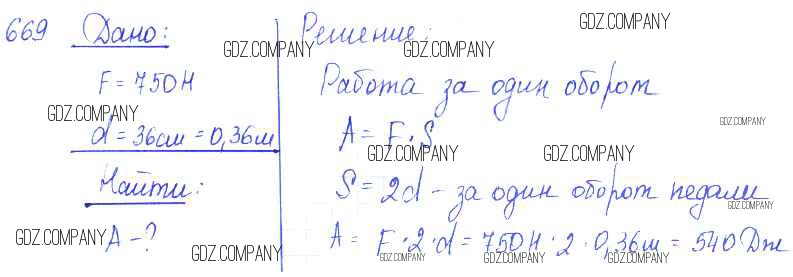 669 Дано:
F = 750 Н
d = 36 см = 0,36 м
Найти:
A - ?
Решение:
Работа за один оборот
A = F · S
S = 2d - за один оборот педали
A = F · 2 · d = 750 Н · 2 · 0,36 м = 540 Дж
GDZ.COMPANY
GDZ.COMPANY
GDZ.COMPANY
GDZ.COMPANY
GDZ.COMPANY
GDZ.COMPANY
GDZ.COMPANY
GDZ.COMPANY
GDZ.COMPANY
GDZ.COMPANY
GDZ.COMPANY
GDZ.COMPANY
GDZ.COMPANY